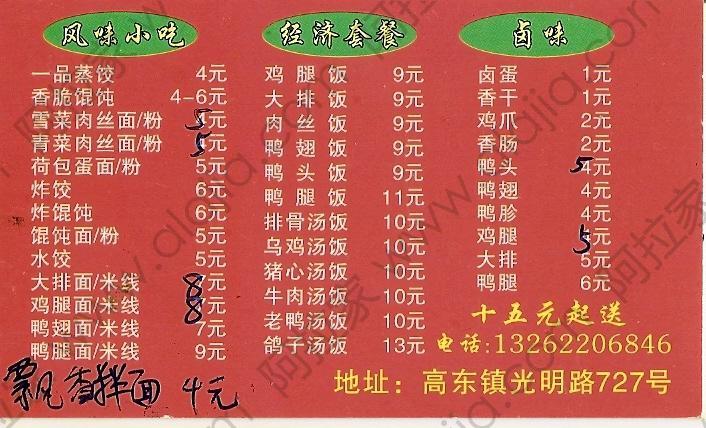 风味小吃
一品蒸饺 4元
香脆馄饨 4-6元
雪菜肉丝面/粉 5元
青菜肉丝面/粉 5元
荷包蛋面/粉 5元
炸饺 6元
炸馄饨 6元
馄饨面/粉 5元
水饺 5元
大排面/米线 8元
鸡腿面/米线 8元
鸭翅面/米线 7元
鸭腿面/米线 9元
飘香拌面 4元
经济套餐
鸡腿饭 9元
大排饭 9元
肉丝饭 9元
鸭翅饭 9元
鸭头饭 9元
鸭腿饭 11元
排骨汤饭 10元
乌鸡汤饭 10元
猪心汤饭 10元
牛肉汤饭 10元
老鸭汤饭 10元
鸽子汤饭 13元
卤味
卤蛋 1元
香干 1元
鸡爪 2元
香肠 2元
鸭头 5 4元
鸭翅 4元
鸭胗 4元
鸡腿 5元
大排 5元
鸭腿 6元
十五元起送
电话:13262206846
地址：高东镇光明路727号
阿拉家 www.alajia.com